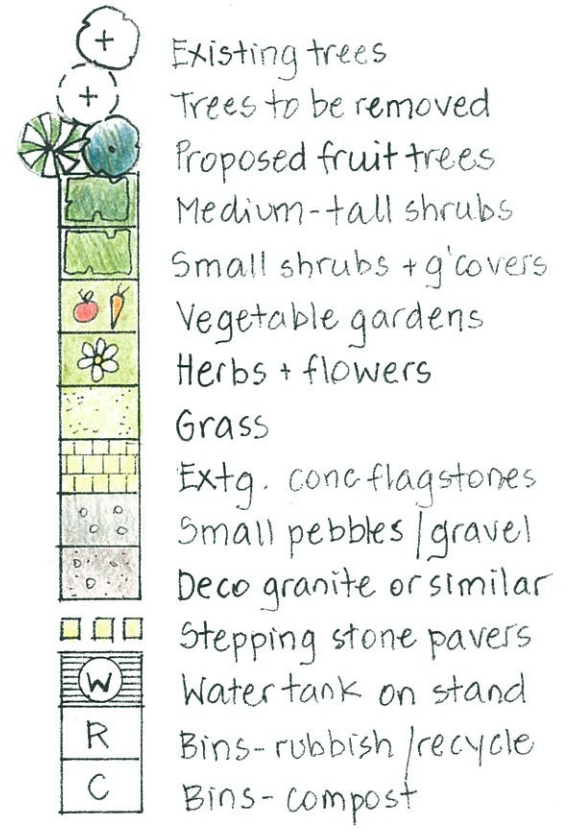 Existing trees
Trees to be removed
Proposed fruit trees
Medium-tall shrubs
Small shrubs + g'covers
Vegetable gardens
Herbs + flowers
Grass
Extg. conc flagstones
Small pebbles/gravel
Deco granite or similar
Stepping stone pavers
W Water tank on stand
R Bins-rubbish/recycle
C Bins-compost